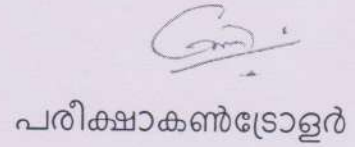 പരീക്ഷാകൺട്രോളർ